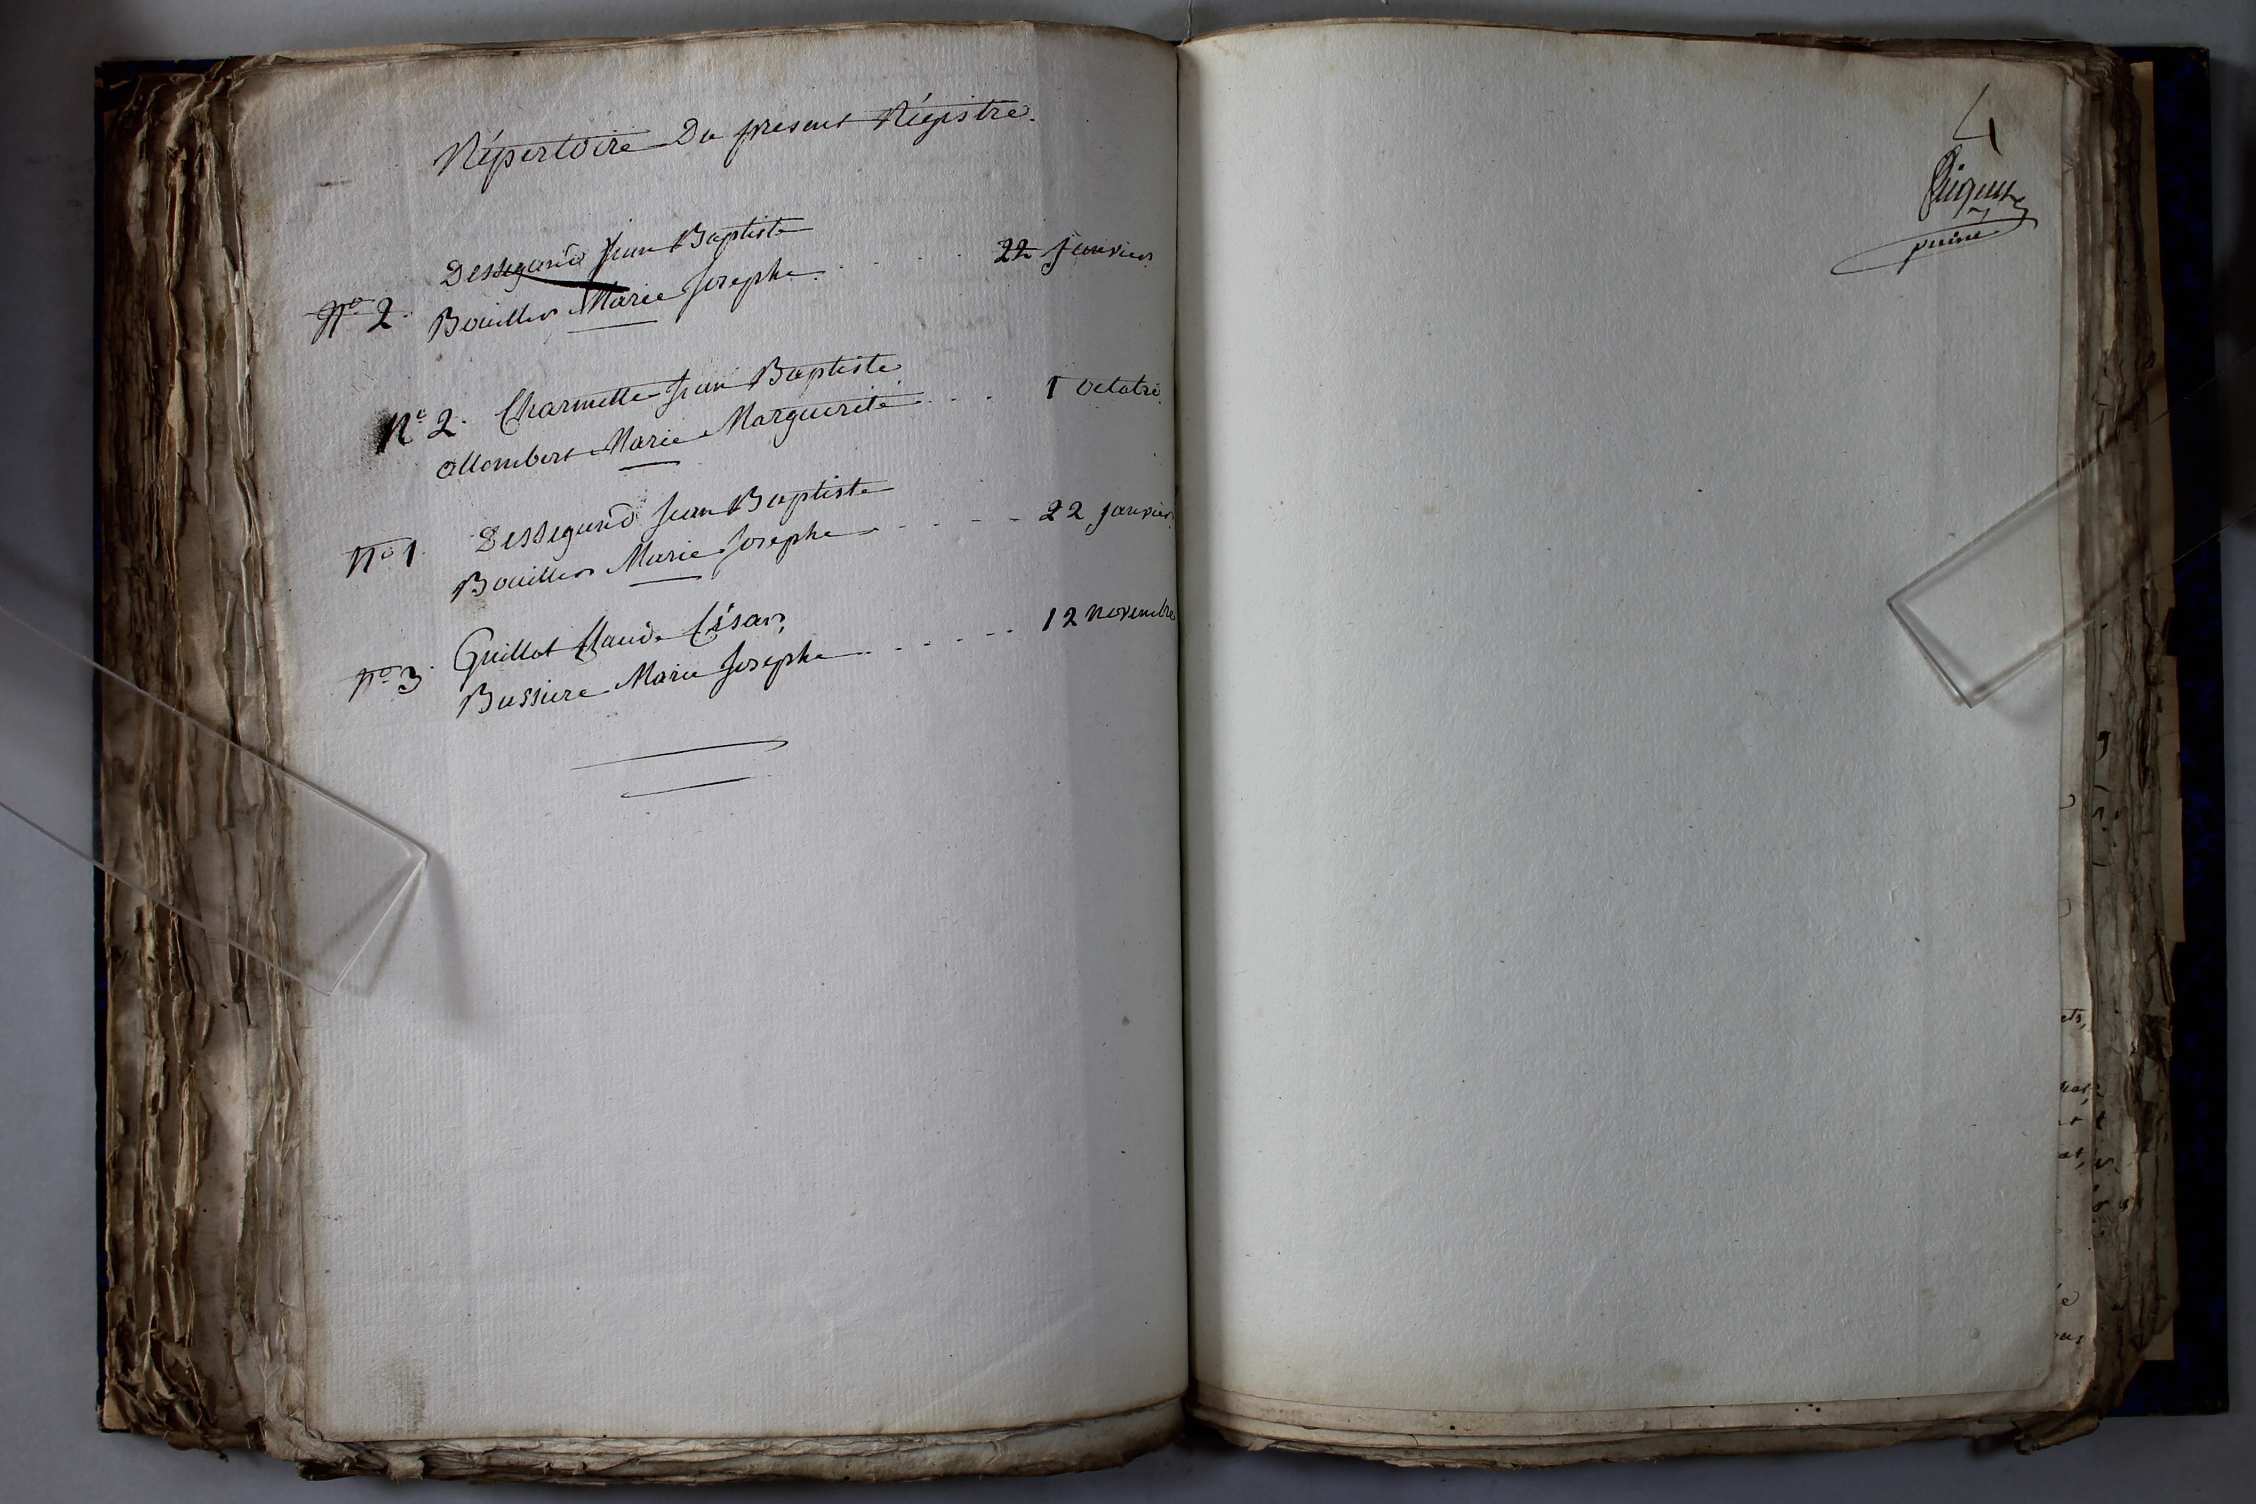 Répertoire Du present Régistre.
Dessegand Jean Baptiste
N.º 2. Bouillon Marie Josephe . . . . . 22 Janvier
N.º 2. Charmette Jean Baptiste
allombert Marie Marguerite . . . 1 octobre
N.º 1. Dessegand Jean Baptiste
Bouillon Marie Josephe . . . . 22 janvier
N.º 3. Guillot Claude César
Bussiere Marie Josephe . . . . . 12 novembre
4